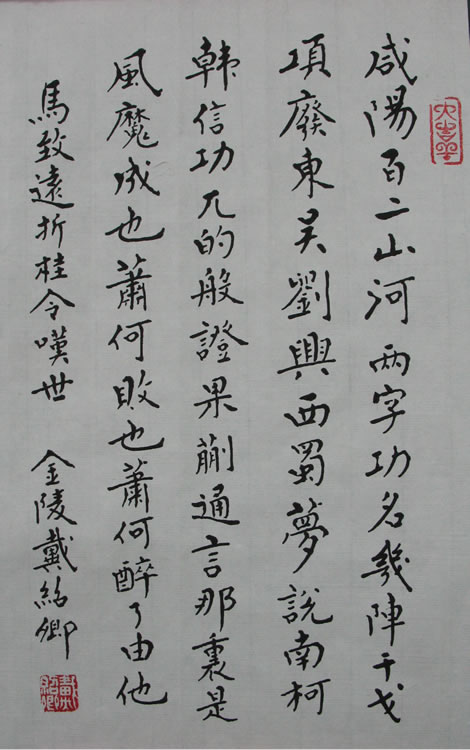 咸陽百二山河两字功名幾陣干戈
項廢東吳劉興西蜀夢說南柯
韓信功兀的般證果蒯通言那裏是
風魔成也蕭何敗也蕭何醉了由他
馬致遠折桂令嘆世 金陵戴紹卿